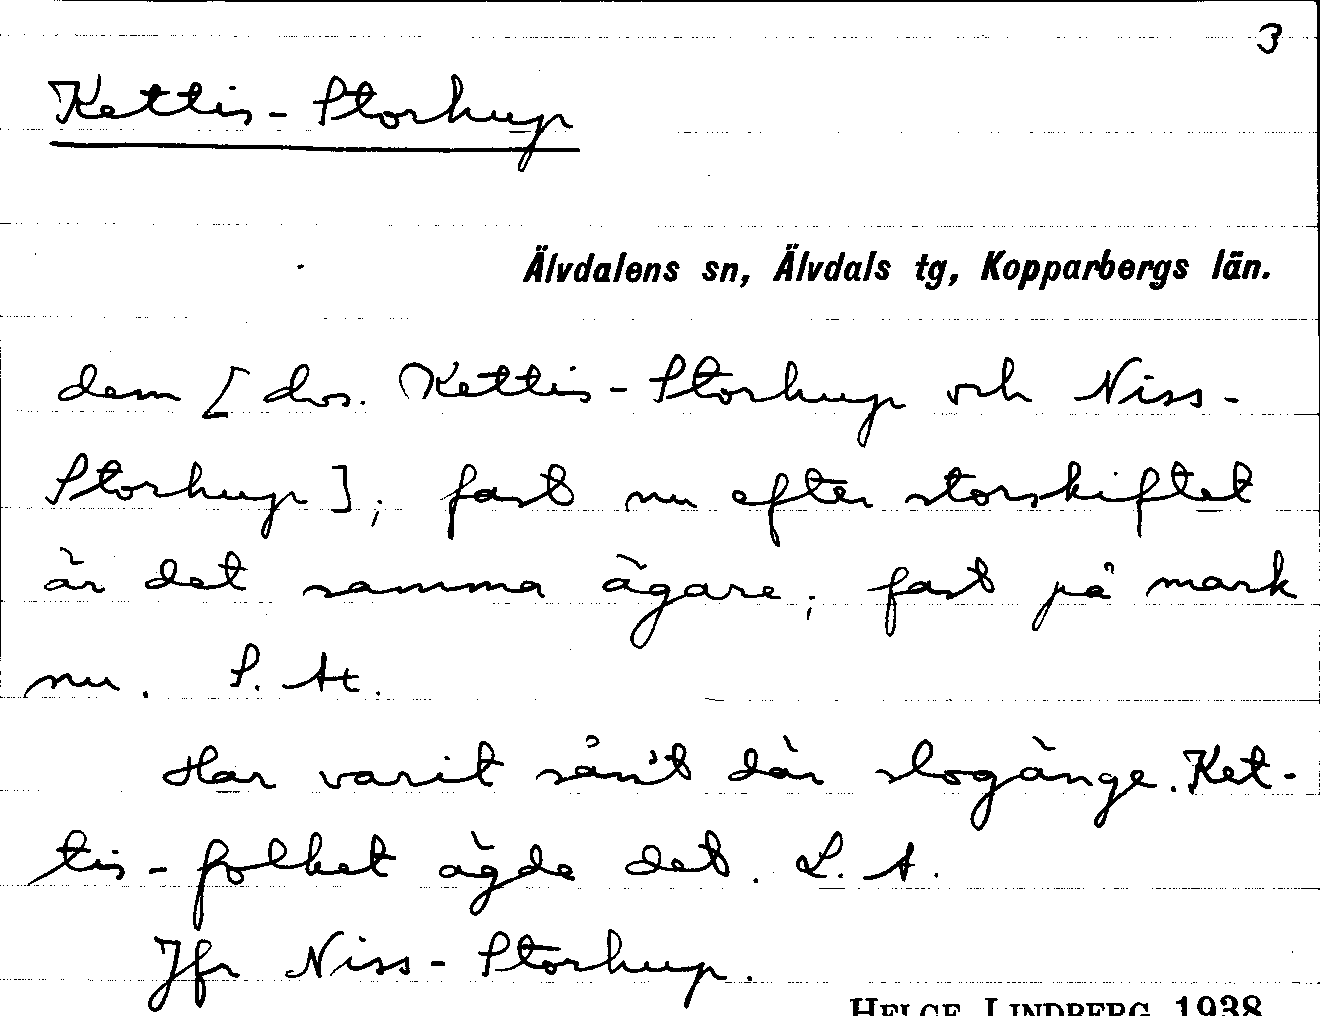 3
Kettis-Storhup
Älvdalens sn, Älvdals tg, Kopparbergs län.
dem [dvs. Kettis-Storhup och Niss-
Storhup]; fast nu efter storskiftet
är det samma ägare; fast på mark
nu. S. At.
Har varit sån't där slogänge. Ket-
tis-folket ägde det. L. A.
Jfr Niss-Storhup.
HELGE LINDBERG 1938